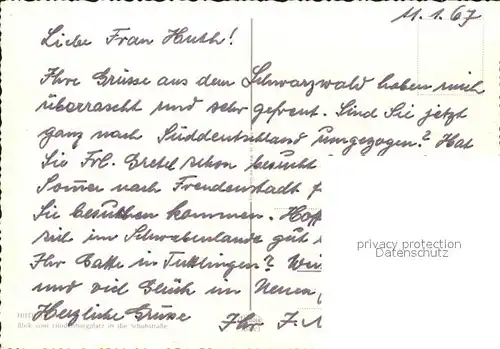 11.1.67
Liebe Frau Huth!
Ihre Grüsse aus dem Schwarzwald haben mich
überrascht und sehr gefreut. Sind Sie jetzt
ganz nach Süddeutschland umgezogen? Hat
Sie Frl. Gretel schon besucht
Sommer nach Freudenstadt
Sie besuchen kommen. Hoff
sich im Schwabenlande gut
Ihr Gatte in Tuttlingen?
und viel Glück im Neuen
Herzliche Grüsse Ihr
privacy protection
Datenschutz
Blick vom Hindenburgplatz in die Schuhstraße